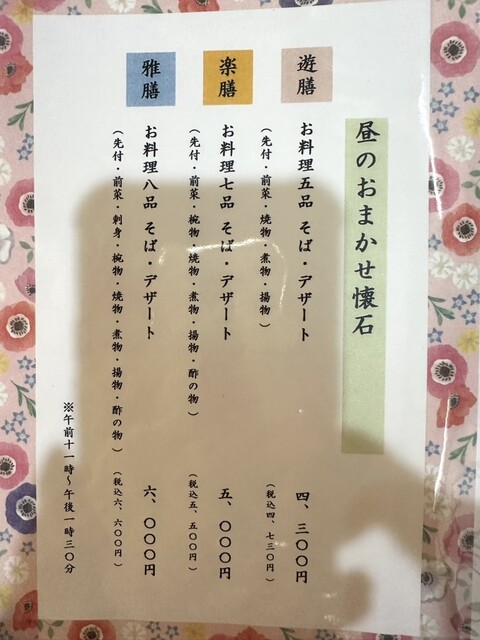 昼のおまかせ懐石
遊膳
お料理五品 そば・デザート 四、三〇〇円
(先付・前菜・焼物・煮物・揚物) (税込四、七三〇円)
楽膳
お料理七品 そば・デザート 五、〇〇〇円
(先付・前菜・椀物・焼物・煮物・揚物・酢の物) (税込五、五〇〇円)
雅膳
お料理八品 そば・デザート 六、〇〇〇円
(先付・前菜・刺身・椀物・焼物・煮物・揚物・酢の物) (税込六、六〇〇円)
※午前十一時～午後一時三〇分